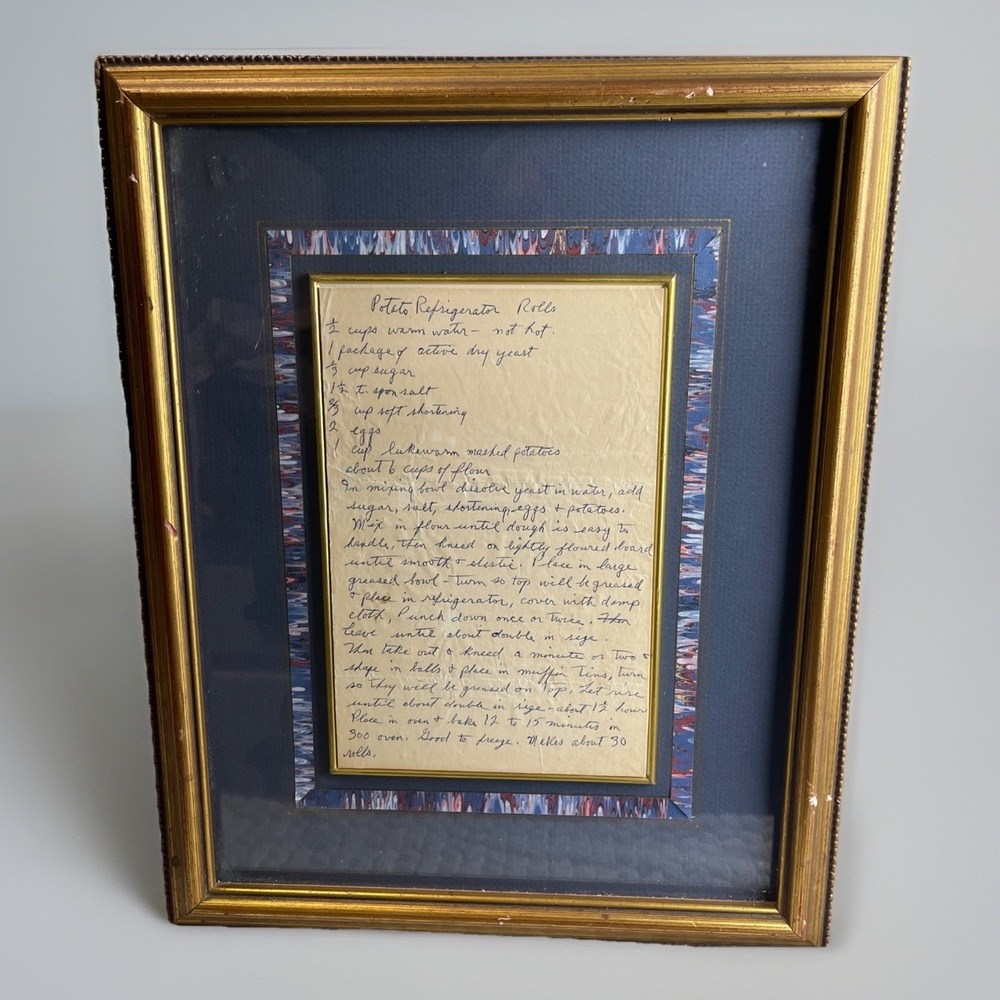 Potato Refrigerator Rolls
½ cups warm water - not hot.
1 package of active dry yeast
⅓ cup sugar
1½ t. spon salt
⅔ cup soft shortening
2 eggs
1 cup lukewarm mashed potatoes
about 6 cups of flour
In mixing bowl disolve yeast in water, add
sugar, salt, shortening, eggs & potatoes.
Mix in flour until dough is easy to
handle, then kneed on lightly floured board
until smooth & elastic. Place in large
greased bowl - turn so top will be greased
& place in refrigerator, cover with damp
cloth, Punch down once or twice, Then
leave until about double in size.
Then take out & kneed a minute or two &
shape in balls & place in muffin tins, turn
so they will be greased on top, let rise
until about double in size - about 1½ hour
Place in oven & bake 12 to 15 minutes in
300 oven. Good to freeze. Makes about 30
rolls.